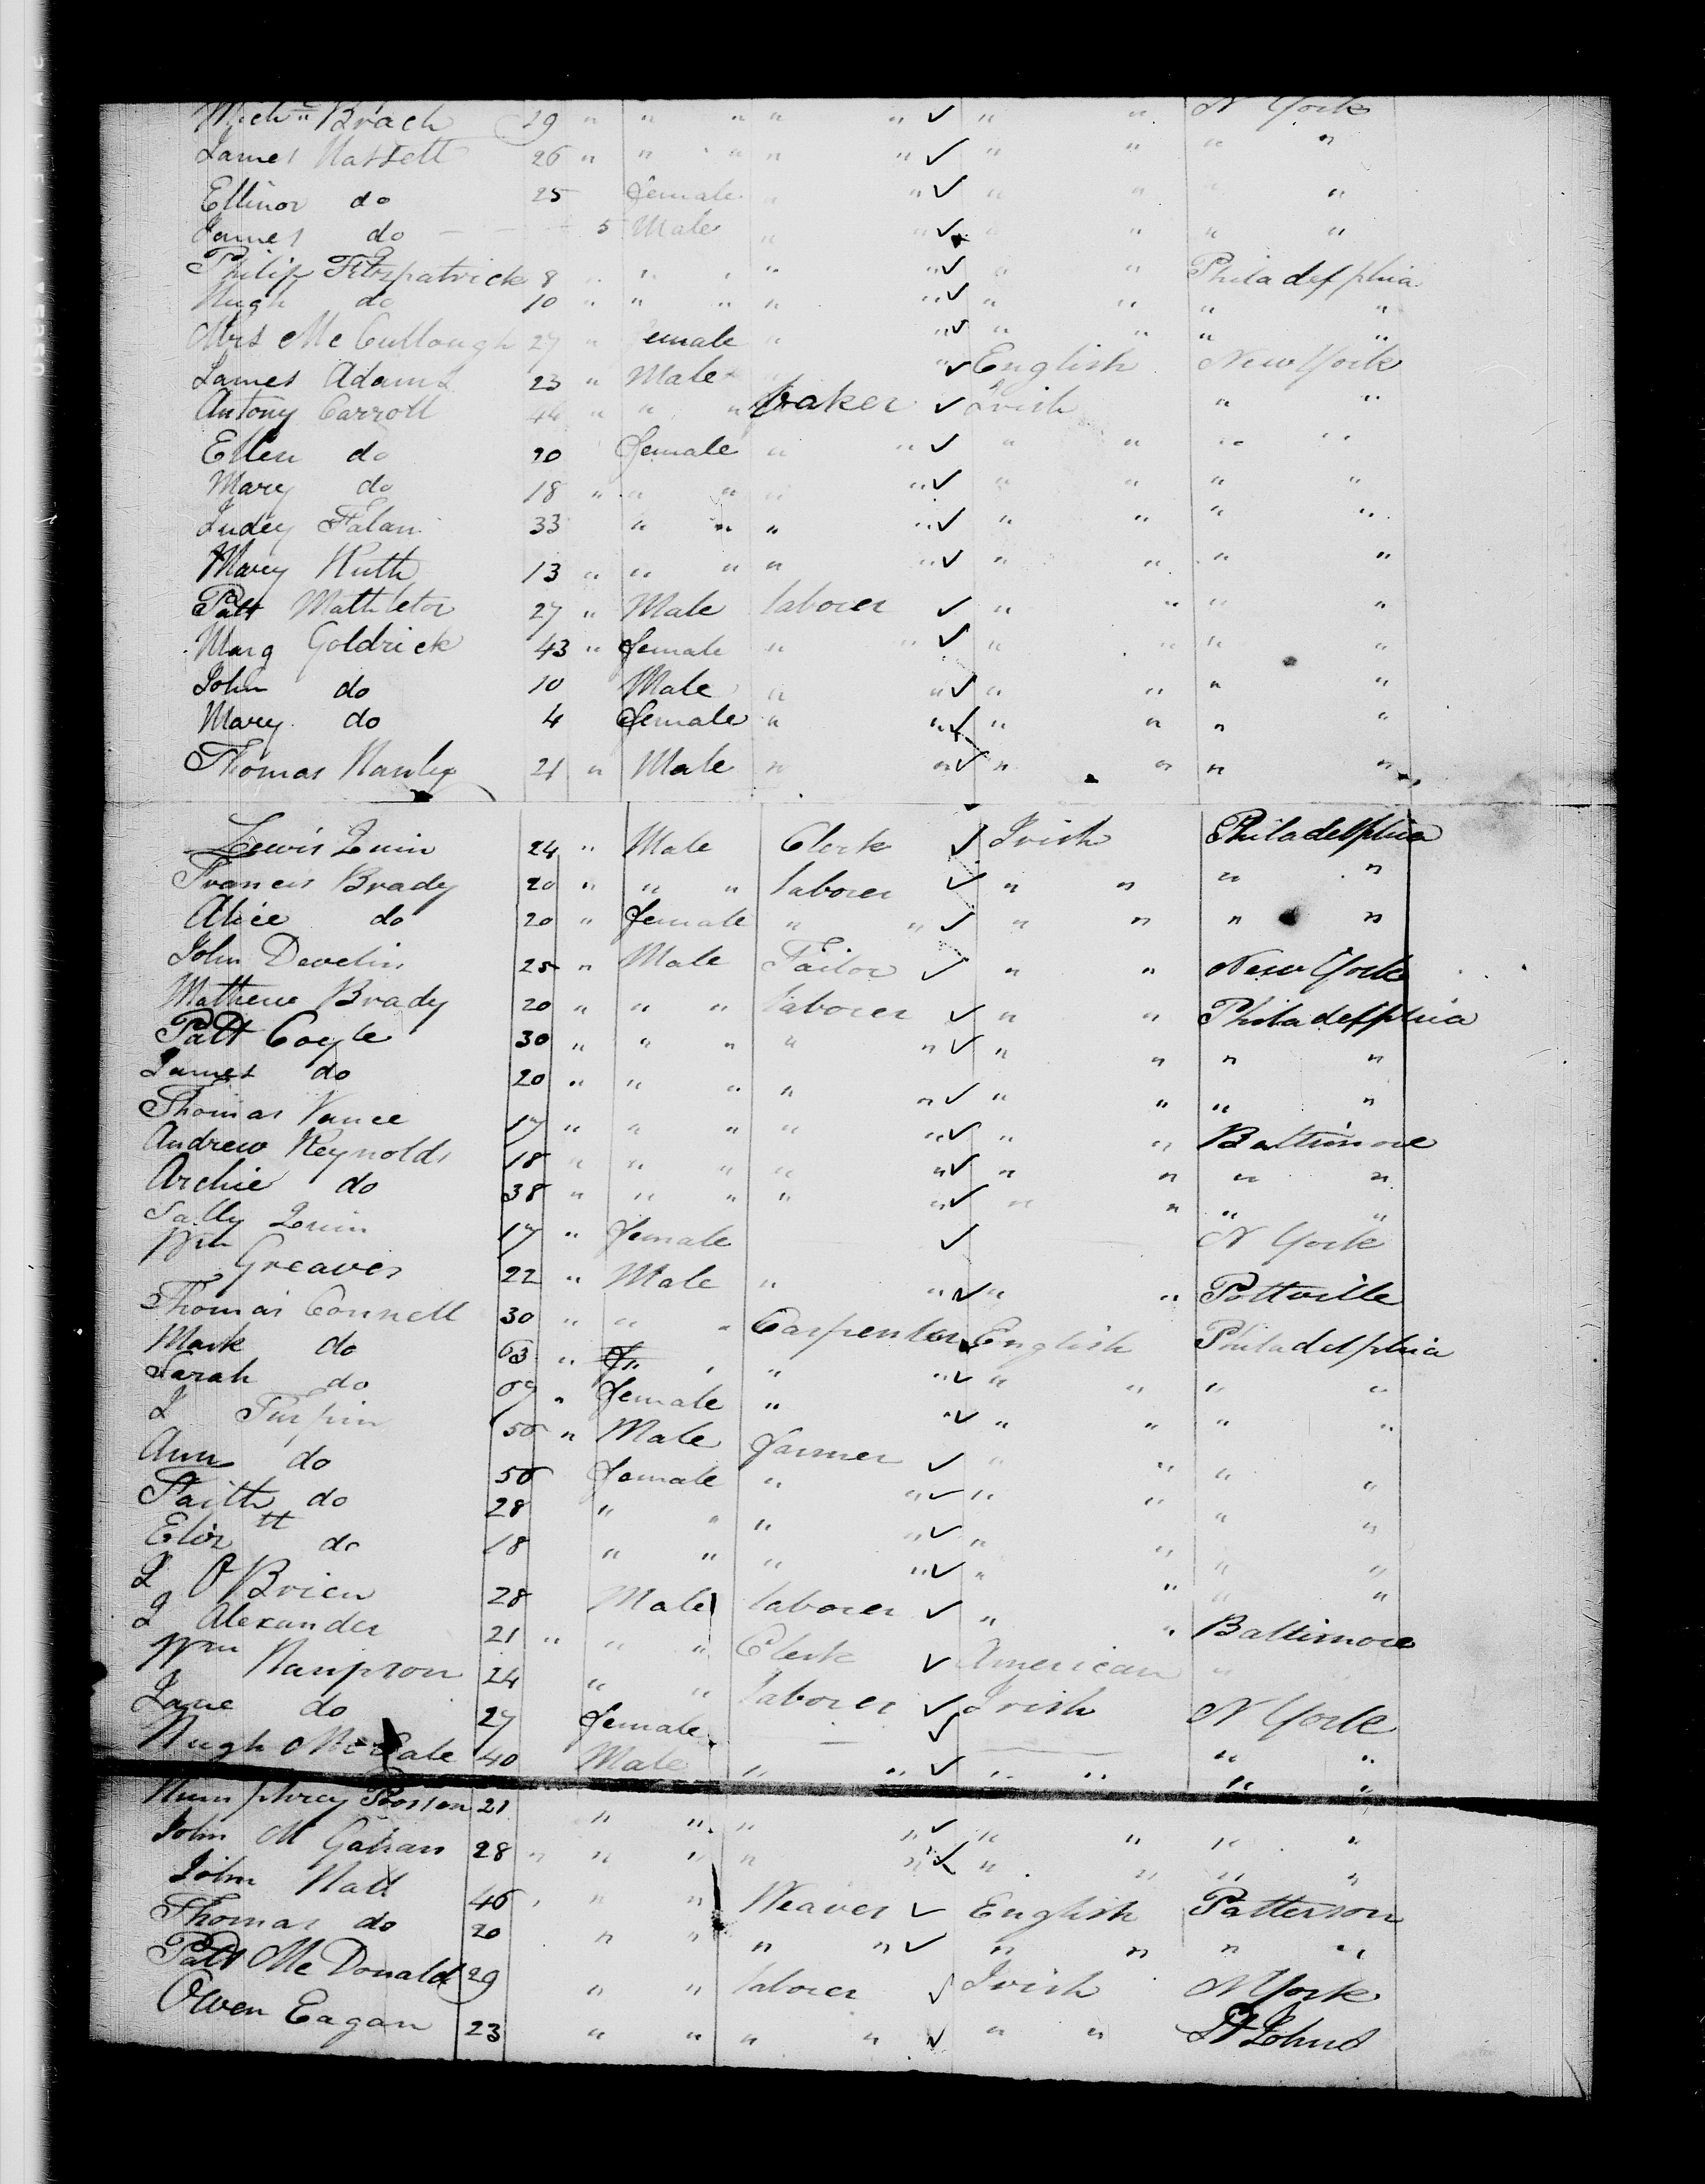 Mich'll Brach 29 " " " " " ✓ " " N York
James Hassett 26 " " " " " ✓ " " " "
Ellinor do 25 female " " ✓ " " " "
James do — — — 5 Male " " ✓ " " " "
Philip Fitzpatrick 8 " " " " " ✓ " " Philadelphia
Hugh do 10 " " " " " ✓ " " " "
Mrs McCullough 27 " female " " ✓ " " " "
James Adams 23 " Male " ✓ English New York
Antony Carroll 44 " " " baker ✓ Irish " "
Ellen do 20 female " " ✓ " " " "
Mary do 18 " " " " " ✓ " " " "
Judey Falan 33 " " " " ✓ " " " "
Mary Ruth 13 " " " " " ✓ " " " "
Patt 27 " Male laborer ✓ " " " "
Marg Goldrick 43 " female " " ✓ " " " "
John do 10 Male " " ✓ " " " "
Mary do 4 female " " ✓ " " " "
Thomas Hanley 21 " Male " " ✓ " " " "
Lewis Quin 24 " Male Clerk ✓ Irish Philadelphia
Francis Brady 20 " " " laborer ✓ " " " "
Alice do 20 " female " " ✓ " " " "
John Develin 25 " Male Tailor ✓ " " New York
Mathew Brady 20 " " " laborer ✓ " " Philadelphia
Patt Coyle 30 " " " " " ✓ " " " "
James do 20 " " " " " ✓ " " " "
Thomas Vance 17 " " " " " ✓ " " Baltimore
Andrew Reynolds 18 " " " " " ✓ " " " "
Archie do 38 " " " " " ✓ " " " "
Sally Quin 17 " female ✓ N York
Wm Greaves 22 " Male " " ✓ " " Pottville
Thomas Connell 30 " " " Carpenter ✓ English Philadelphia
Mark do 63 " " " " ✓ " " " "
Sarah do " female " " ✓ " " " "
J Turpin 50 " Male farmer ✓ " " " "
Ann do 50 female " " ✓ " " " "
Faith do 28 " " " " ✓ " " " "
Eliztt do 18 " " " " ✓ " " " "
J O'Brien 28 Male laborer ✓ " " Baltimore
J Alexander 21 " " " Clerk ✓ American "
Wm Hampson 24 " " laborer ✓ Irish N York
Jane do 27 female — ✓ — " "
Hugh 40 Male " " ✓ " " " "
Humphrey 21 " " " " ✓ " " " "
John M Gahan 28 " " " " " ✓ " " " "
John Hall 46 " " " Weaver ✓ English Patterson
Thomas do 20 " " " " ✓ " " " "
Patt McDonald 29 " " laborer ✓ Irish N York
Owen Eagan 23 " " " " ✓ " " St Johns